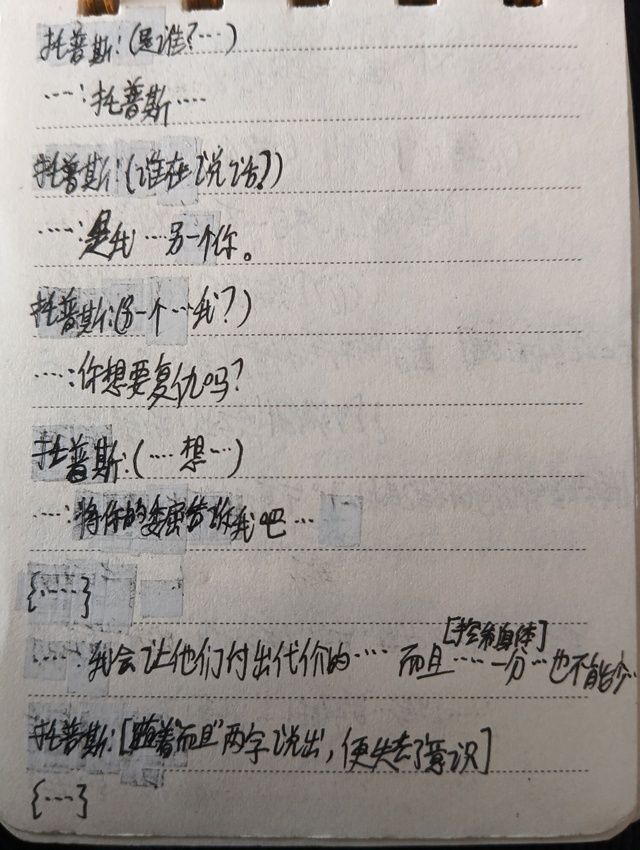 托普斯:(是谁?…)
……:托普斯……
托普斯:(谁在说话?)
……:是我…另一个你。
托普斯:(另一个…我?)
……:你想要复仇吗?
托普斯:(……想…)
……:将你的委屈给予我吧…
{……}
[控制身体]
……:我会让他们付出代价的…… 而且……一分…也不能少
托普斯:[随着"而且"两字说出,便失去了意识]
{……}